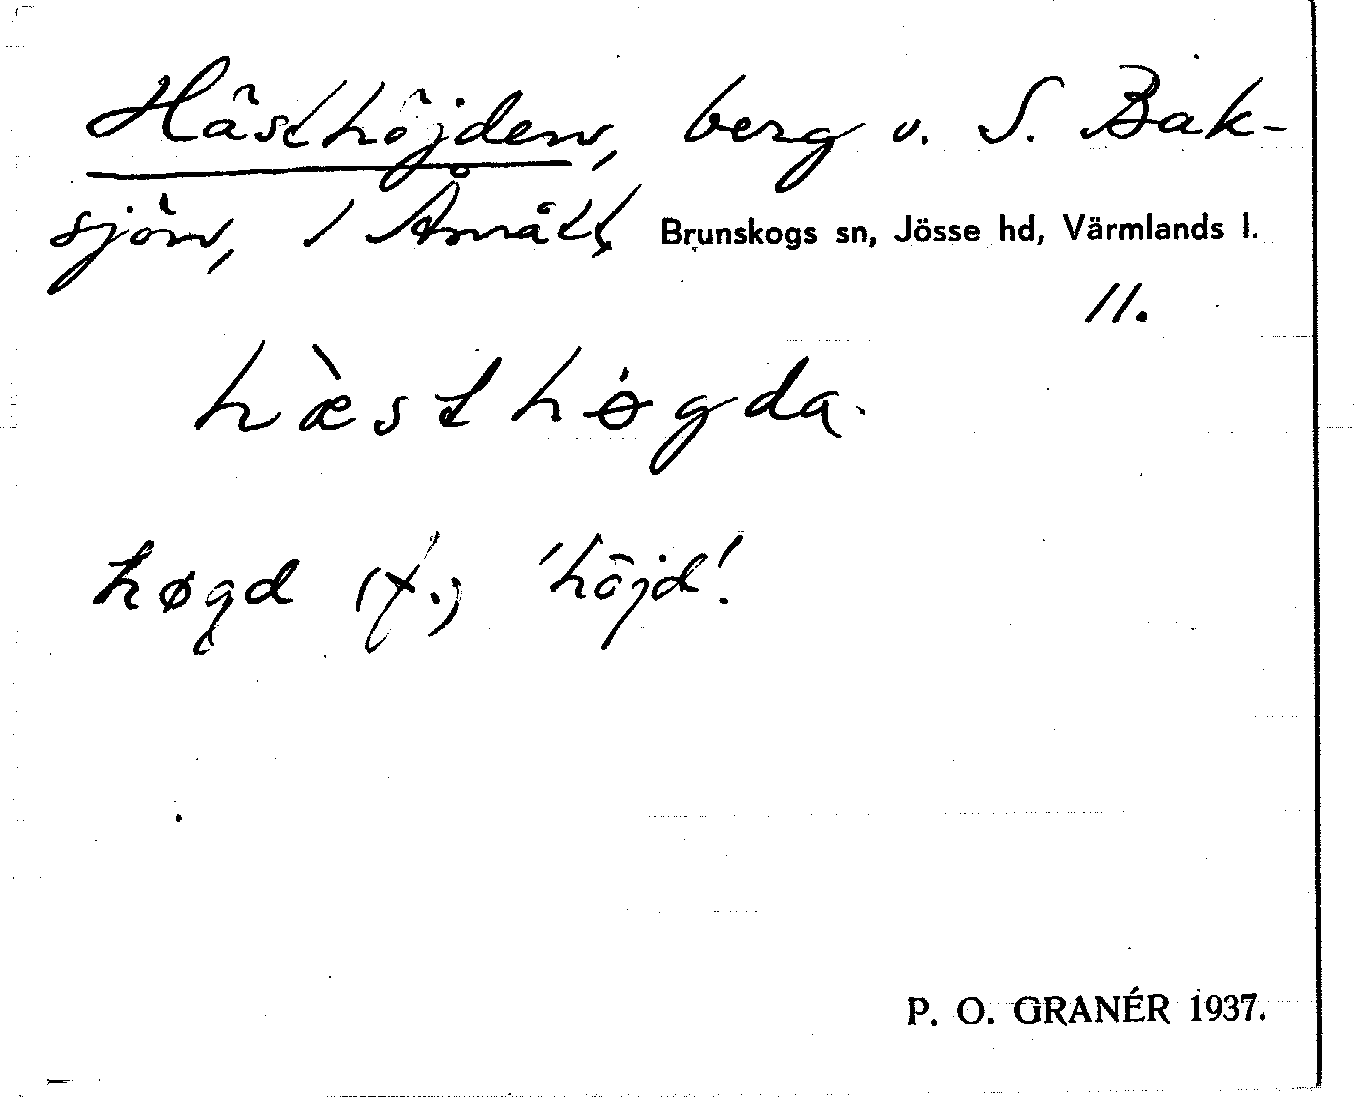 Hästhöjden, berg v. S. Bak-
sjön, i Åmått Brunskogs sn, Jösse hd, Värmlands l.
11.
hæ̀sthøgda.
høgd (f.) 'höjd'.
P. O. GRANÉR 1937.